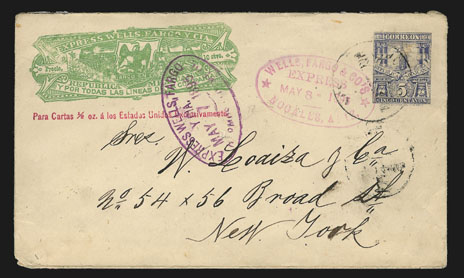 EXPRESS WELLS, FARGO Y CIA
Precio, 10 ctvs.
REPUBLICA
Y POR TODAS LAS LINEAS D
Para Cartas ½ oz. á los Estados Unidos Exclusivamente.
EXPRESS WELLS, FARGO
MAY
WELLS, FARGO & CO'S
EXPRESS
MAY 8
NOGALES, A
CORREOS
5
CINCO CENTAVOS
Sres.
W. Loaiza y Ca
No. 54 x 56 Broad St
New York